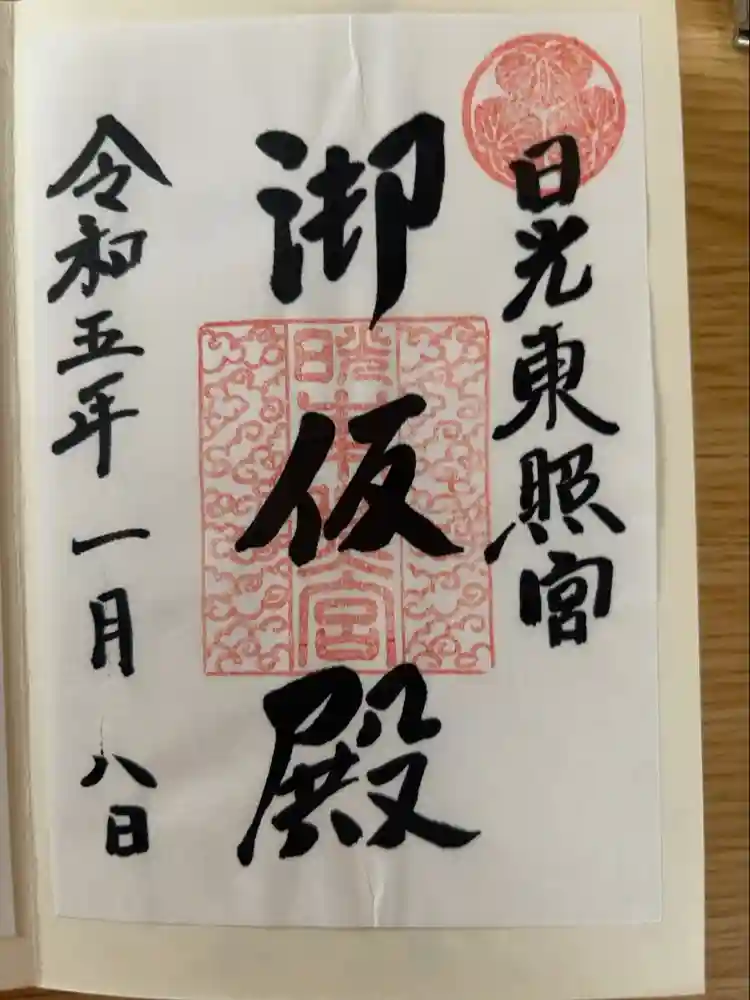 日光東照宮
御仮殿
日光東照宮
令和五年一月八日